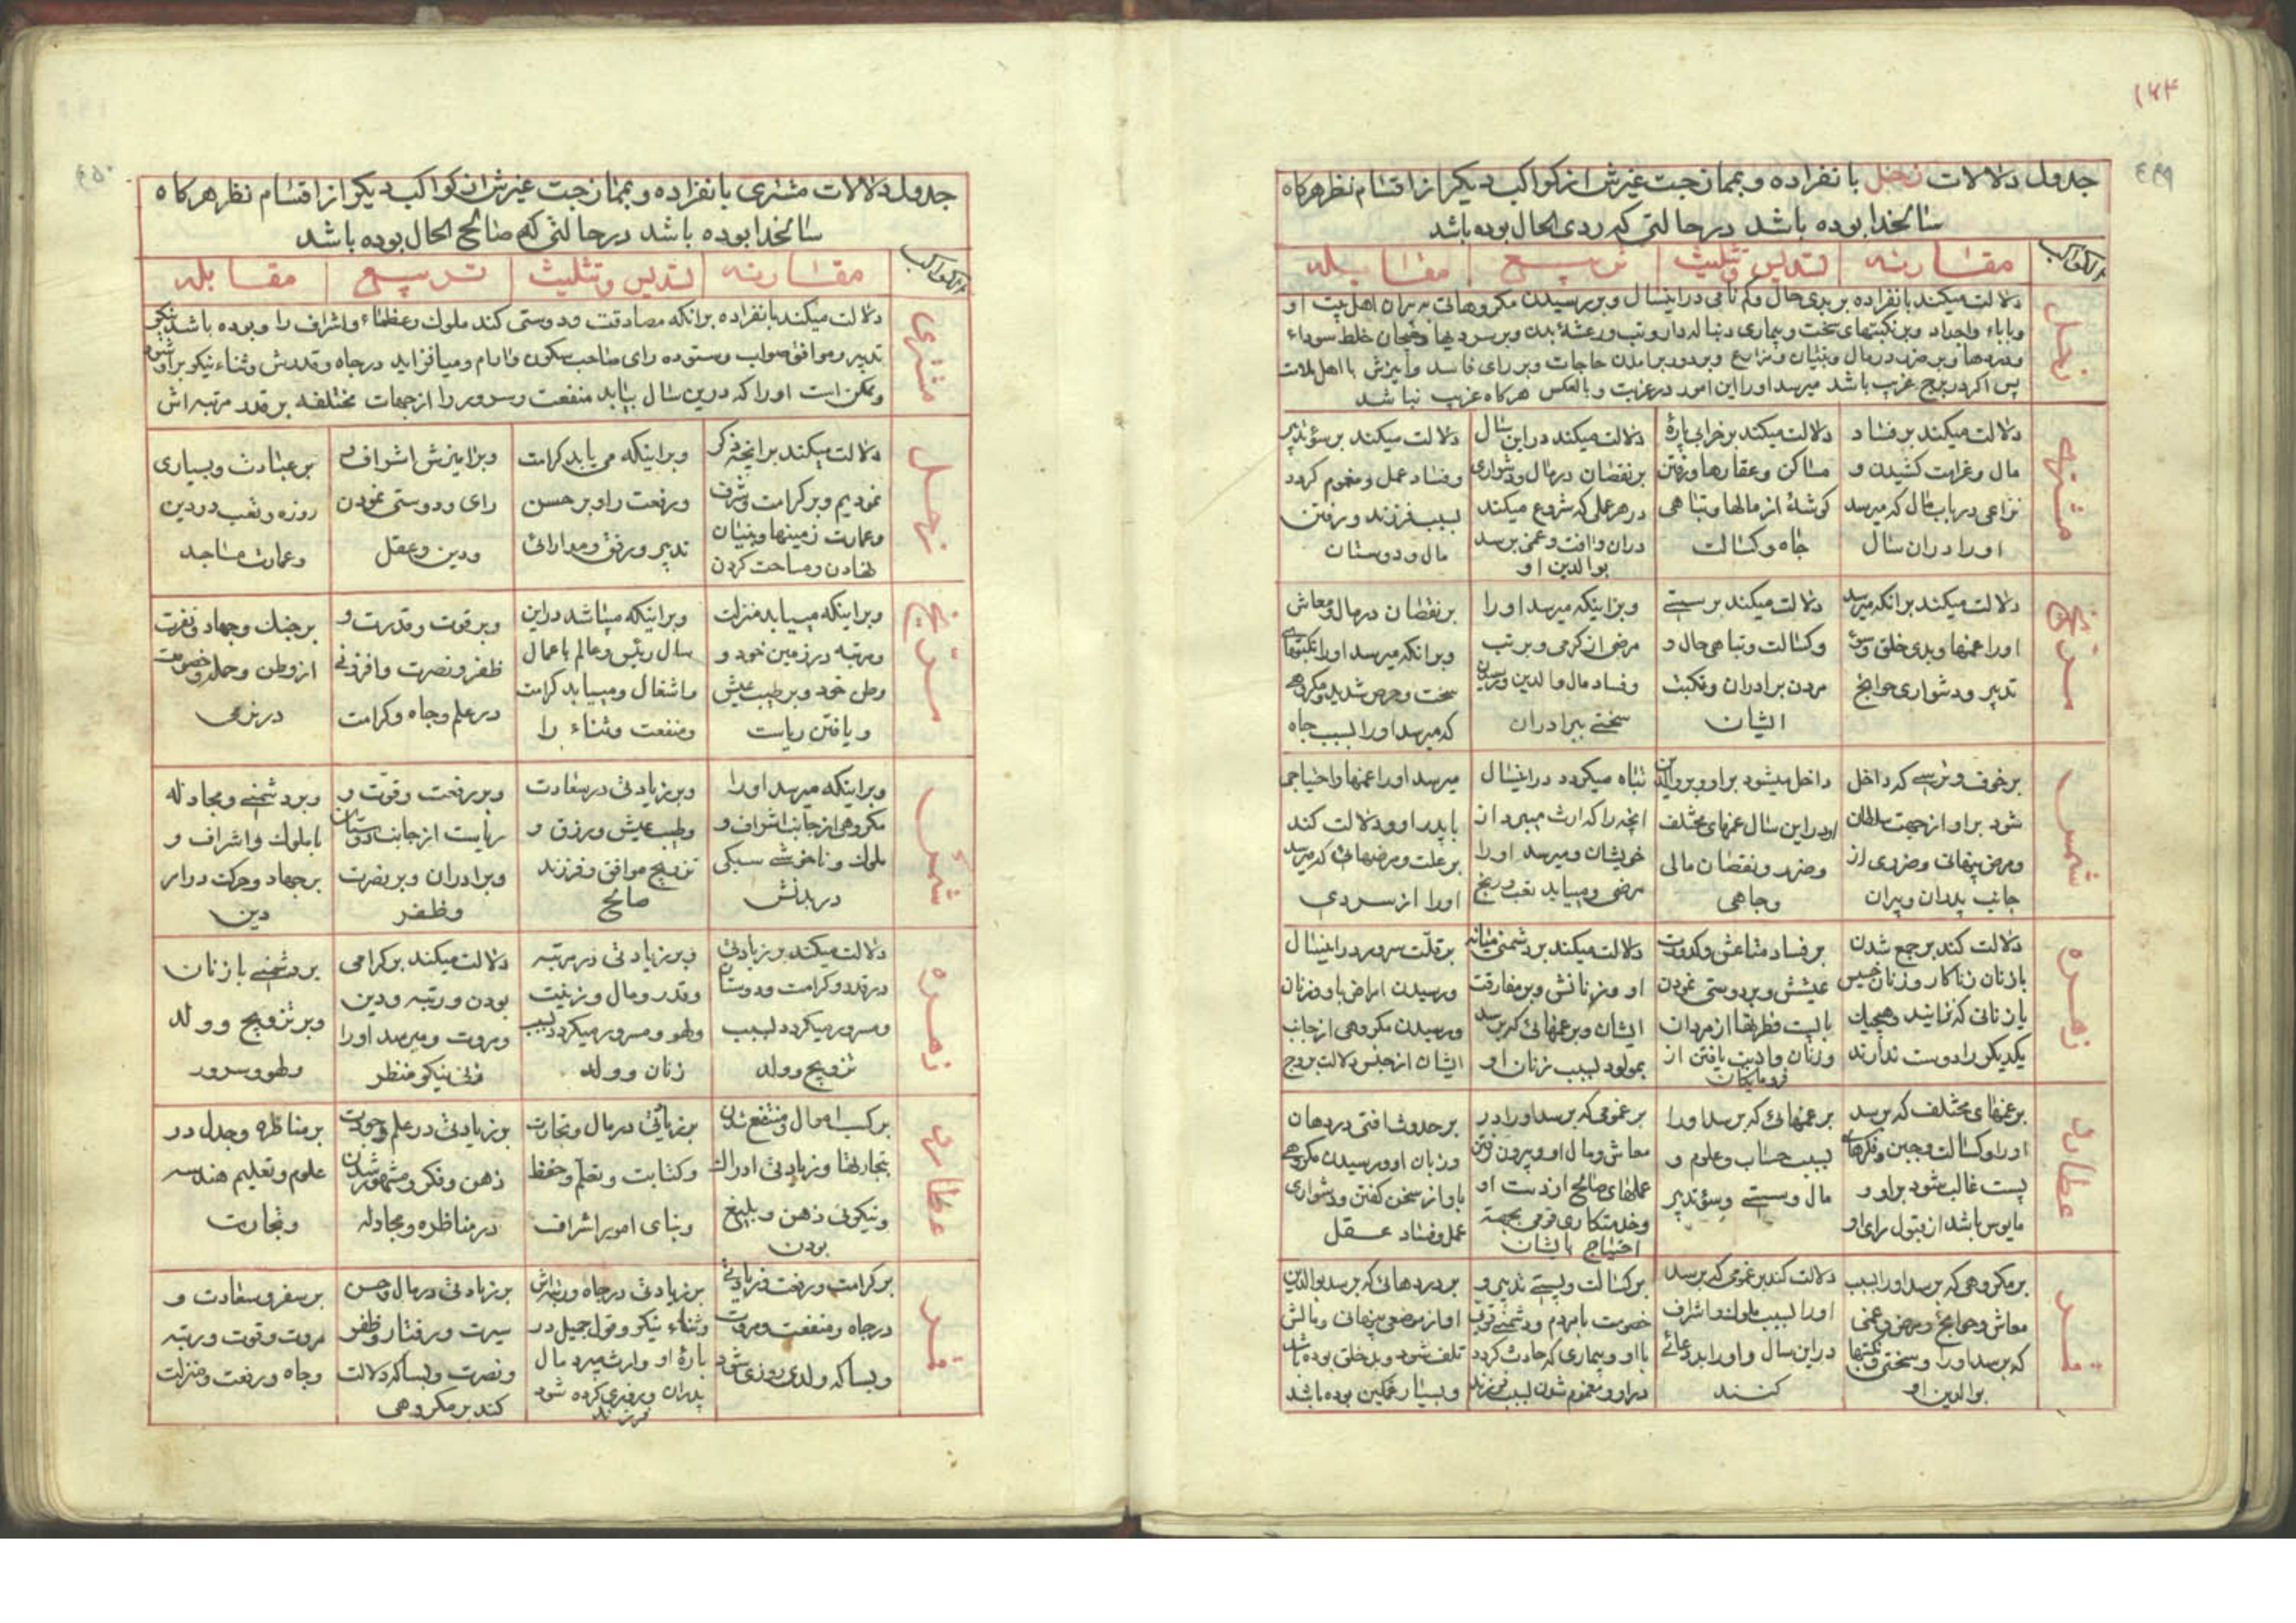 ۱۶۴
جدول دلالات زحل بانفراده و بممازجت غیرش از کواکب دیگر از اقسام نظر هرگاه
سالخدا بوده باشد در حالتی که ردی الحال بوده باشد
الکواکب
مقارنه
تسدیس و تثلیث
تربیع
مقابله
زحل
دلالت میکند بانفراده بر بدی حال و کم نامی در اینسال و بر رسیدن مکروهاتی به پیران اهل بیت او
و باباء و اجداد و بر نکبتهای سخت و بیماری دنباله دار و تب و رعشهٔ بدن و بر سردیها و هیجان خلط سوداء
و دردها و بر ضرر در مال و بنیان و مزارع و بر دور برامدن حاجات و بر رای فاسد و آمیزش با اهل
پس اگر در برج غریب باشد میرسد او را این امور در غربت و بالعکس هرگاه غریب نباشد
مشتری
دلالت میکند بر فساد
مال و غرامت کشیدن و
نزاعی در باب مال که میرسد
او را در ان سال
دلالت میکند بر خرابی پارهٔ
مساکن و عقارها و رفتن
گوشهٔ از مالها و تباهی
جاه و کسالت
دلالت میکند در این سال
بر نقصان در مال و دشواری
در هر عملی که شروع میکند
در ان و افت و غمی برسد
بوالدین او
دلالت میکند بر سؤ تدبیر
و فساد عمل و مغموم گردد
بسبب فرزند و رفتن
مال و دوستان
مریخ
دلالت میکند بر انکه میرسد
او را غمها و بدی خلق و سؤ
تدبیر و دشواری حوایج
دلالت میکند بر سستی
و کسالت و تباهی حال و
مردن برادران و نکبت
ایشان
و بر اینکه میرسد او را
مرضی از گرمی و بر تب
و فساد مال والدین و رسیدن
سختی ببرادران
بر نقصان در مال و معاش
و بر انکه میرسد او را نکبتهای
سخت و مرض شدید و مکروهی
که میرسد او را بسبب جاه
شمس
بر خوف و ترسی که داخل
شود بر او از جهت سلطان
و مرض پنهانی و ضرری از
جانب پدران و پیران
داخل میشود بر او و بر والدین
او در این سال غمهای مختلف
و ضرر و نقصان مالی
و جاهی
تباه میگردد در اینسال
انچه را که ارث میبرد از
خویشان و میرسد او را
مرضی و مییابد تعب و رنج
میرسد او را غمها و احتیاجی
با پدر او و دلالت کند
بر علت و مرضهائی که میرسد
او را از سردی
زهره
دلالت کند بر جمع شدن
با زنان زناکار و زنان خسیس
یا زنانی که نزایند و هیچیک
یکدیگر را دوست ندارند
بر فساد متاعش و کدورت
عیشش و بر دوستی نمودن
با پست فطرتها از مردان
و زنان و اذیت یافتن از
فرومایگان
دلالت میکند بر دشمنی میانه
او و زنانش و بر مفارقت
ایشان و بر غمهائی که برسد
بمولود بسبب زنان او
بر قلّت سرور در اینسال
و رسیدن امراض باو و زنان
و رسیدن مکروهی از جانب
ایشان از جنس دلالت برج
عطارد
بر غمهای مختلف که برسد
او را و کسالت و جبن و فکرهای
پست غالب شود بر او و
مایوس باشد از قبول رای او
بر غمهائی که برسد او را
بسبب حساب و علوم و
مال و سستی و سؤ تدبیر
بر غمومی که برسد او را در
معاش و مال او و بیرون رفتن
عملهای صالح از دست او
و خدمتکاری قومی بجهته
احتیاج بایشان
بر حدوث افتی در دهان
و زبان او و رسیدن مکروهی
باو از سخن گفتن و دشواری
عمل و فساد عقل
قمر
بر مکروهی که برسد او را بسبب
معاش و حوایج و مرض و غمی
که برسد او را و سختی و نکبتها
بوالدین او
دلالت کند بر غمومی که برسد
او را بسبب ملوک و اشراف
در این سال و او را بد دعائی
کنند
بر کسالت و پستی تدبیر و
خصومت با مردم و دشمنی قومی
با او و بیماری که حادث گردد
در او و مغموم شدن بسبب فرزند
بر دردهائی که برسد بوالدین
او از موضعی پنهانی و مالش
تلف شود و بد خلق بوده باشد
و بسیار غمگین بوده باشد
جدول دلالات مشتری بانفراده و بممازجت غیرش از کواکب دیگر از اقسام نظر هرگاه
سالخدا بوده باشد در حالتی که صالح الحال بوده باشد
الکواکب
مقارنه
تسدیس و تثلیث
تربیع
مقابله
مشتری
دلالت میکند بانفراده بر انکه مصادقت و دوستی کند ملوک و عظماء و اشراف را و بوده باشد نیکو
تدبیر و موافق صواب و ستوده رای صاحب سکون و ارام و میافزاید در جاه و قدرش و ثناء نیکو بر او شود
و ممکن است او را که در این سال بیابد منفعت و سرور را از جهات مختلفه بر قدر مرتبه اش
زحل
دلالت میکند بر انچه ذکر
نمودیم و بر کرامت و شرف
و عمارت زمینها و بنیان
نهادن و مساحت کردن
و بر اینکه می یابد کرامت
و رفعت را و بر حسن
تدبیر و رفق و مدارائی
و بر امیزش اشراف
رای و دوستی نمودن
و دین و عقل
بر عبادت و بسیاری
روزه و تعب در دین
و عمارت مساجد
مریخ
و بر اینکه مییابد منزلت
و مرتبه در زمین خود و
وطن خود و بر طیب عیش
و یافتن ریاست
و بر اینکه میباشد در این
سال رئیس و عالم باعمال
و اشغال و مییابد کرامت
و منفعت و ثناء را
و بر قوت و قدرت و
ظفر و نصرت و افزونی
در علم و جاه و کرامت
بر جنگ و جهاد و نفرت
از وطن و جدل و خصومت
در نزاعی
شمس
و بر اینکه میرسد او را
مکروهی از جانب اشراف و
ملوک و ناخوشی سبکی
در بدنش
و بر زیادتی در سعادت
و طیب عیش و رزق و
تزویج موافق و فرزند
صالح
و بر رفعت و قوّت و
ریاست از جانب دوستان
و برادران و بر نصرت
و ظفر
و بر دشمنی و مجادله
با ملوک و اشراف و
بر جهاد و حرکت در امر
دین
زهره
دلالت میکند بر زیادتی
در قدر و کرامت و دوستان
و مسرور میگردد بسبب
تزویج و ولد
و بر زیادتی در مرتبه
و قدر و مال و زینت
و لهو و مسرور میگردد بسبب
زنان و ولد
دلالت میکند بر گرامی
بودن و رتبه و دین
و مروت و میرسد او را
زنی نیکو منظر
بر دشمنی با زنان
و بر تزویج و ولد
و لهو و سرور
عطارد
بر کسب اموال و منتفع شدن
بتجارتها و زیادتی ادراک
و نیکوئی ذهن و بلیغ
بودن
بر زیادتی در مال و تجارت
و کتابت و تعلّم و حفظ
و بنای امور اشراف
بر زیادتی در علم و جودت
ذهن و فکر و مشهور شدن
در مناظره و مجادله
بر مناظره و جدل در
علوم و تعلیم هندسه
و تجارت
قمر
بر کرامت و رفعت و زیادتی
در جاه و منفعت و مروت
و بسا که ولدی روزی شود
بر زیادتی در جاه و رتبه اش
و ثناء نیکو و قول جمیل در
بارهٔ او و ارث میبرد مال
پدران و روزی کرده شود
فرزند
بر زیادتی در مال و حسن
سیرت و رفتار و ظفر
و نصرت و بسا که دلالت
کند بر مکروهی
بر سفر و سعادت و
مروت و قوت و رتبه
و جاه و رفعت و منزلت